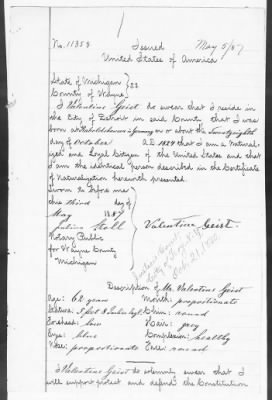 No. 11358 Issued May 5/87
United States of America
State of Michigan } ss
County of Wayne }
I Valentine Geist do swear that I reside in
the City of Detroit in said County that I was
born at in Germany on or about the Twenty eighth
day of October A.D. 1824 that I am a Natural-
ized and Loyal Citizen of the United States and that
I am the identical person described in the Certificate
of Naturalization herewith presented.
Sworn to before me
this third day of
May 1887
Julius Stoll
Valentine Geist.
Notary Public
for Wayne County
Michigan
Description of Mr. Valentine Geist
Age: 62 years Mouth: proportionate
Stature: 5 feet 8 inches Engl. Chin: round
Forehead: low Hair: grey
Eyes: blue Complexion: healthy
Nose: proportionate Face: round
I Valentine Geist do solemnly swear that I
will support protect and defend the Constitution